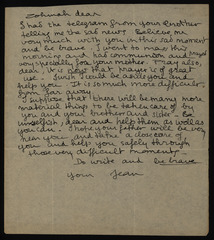 dear
I had the telegram from your brother
telling me the sad news. Believe me
very much with you in this sad moment
and be brave. I went to mass this
morning and had communion and prayed
very specially for your mother. Pray also,
dear, it is prayer is of great
use. I wish I could be aside you and
help you. It is so much more difficult
from far away.
I suppose that there will be many more
material things to be taken care of by
you and your brother and sister. Be
unselfish, dear and help them as well as
you can. I hope your father will be very
near you and take a close care of
you and help you safely through
those very difficult moments.
Do write and be brave
your Jean